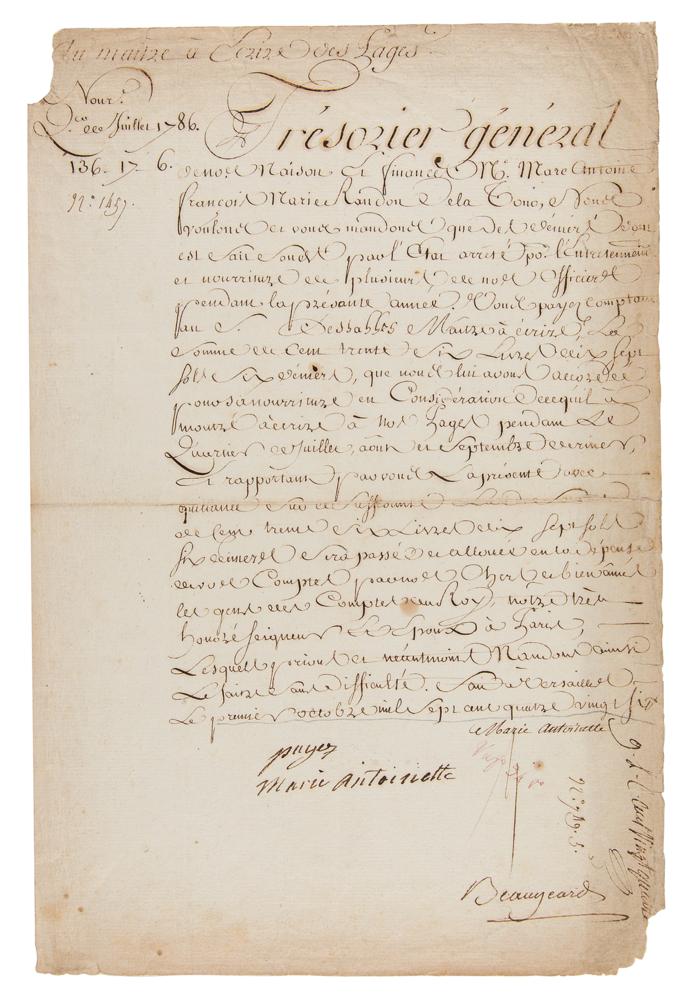 Au maitre à Ecrire des Pages.
Nour.re
Q.er de Juillet 1786.
136. 17. 6.
N.° 1457.
Trésorier général
de nos Maison Et finances M.e Marc Antoine
francois Marie Randon De la Tour, Nous
voulons et vous mandons que des deniers
est fait fonds par l'Etat arrêté po.r l'Entretenement
et nourriture de plusieurs de nos Officiers
pendant la présente année. Vous payez comptant
au S. Dessables Maitre à écrire, La
Somme de Cent trente Six Livres dix Sept
sols Six deniers, que nous lui avons accordée
pour sa nourriture en Considération de ce qu'il à
montré à écrire à nos Pages pendant Le
Quartier de Juillet, aoust et Septembre derniers,
Et rapportant par vous La présente avec
quittance Sur ce Suffisante La de Somme
de Cent trente Six Livres dix Sept sols
six deniers Sera passée et allouée en la dépense
de vos Comptes par nos Chers et bien amés
les gens des Comptes du Roy, notre très
honoré Seigneur Et Epoux à Paris,
Lesquels prions et néantmoins Mandons ainsi
Le faire Sans difficulté. Fait à Versailles
Le premier octobre mil Sept cent quatre vingt Six
Marie Antoinette
payez
Marie Antoinette
N.° 789. 5.
Beaugeard